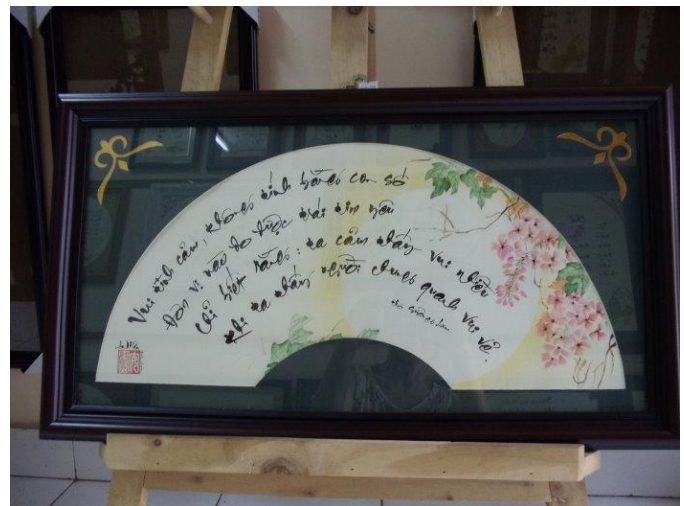 Vui tình cảm, không tính bằng con số
Đơn vị nào đo được trái tim yêu
Chỉ biết rằng: ta cảm thấy vui nhiều
Khi ta thấy người chung quanh vui vẻ.